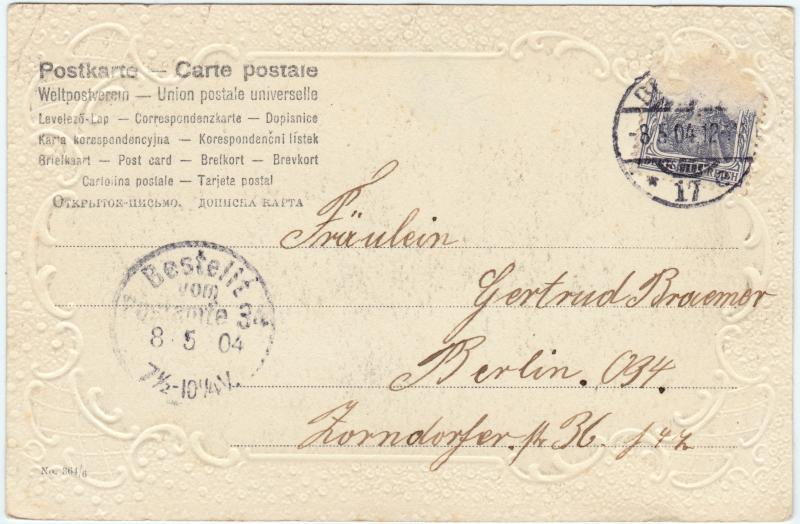 Postkarte — Carte postale
Weltpostverein — Union postale universelle
Levelező-Lap — Correspondenzkarte — Dopisnice
Karta korespondencyjna — Korespondenční lístek
Briefkaart — Post card — Brefkort — Brevkort
Cartolina postale — Tarjeta postal
Открытое-письмо. дописна карта
-8.5.04.12-
* 17
DEUTSCHES REICH
Fräulein
Gertrud Braemer
Berlin. O34.
Zorndorfer str 36.
Bestellt
vom
Postamte 34
8 5 04
7½-10¼V.
No. 364/6